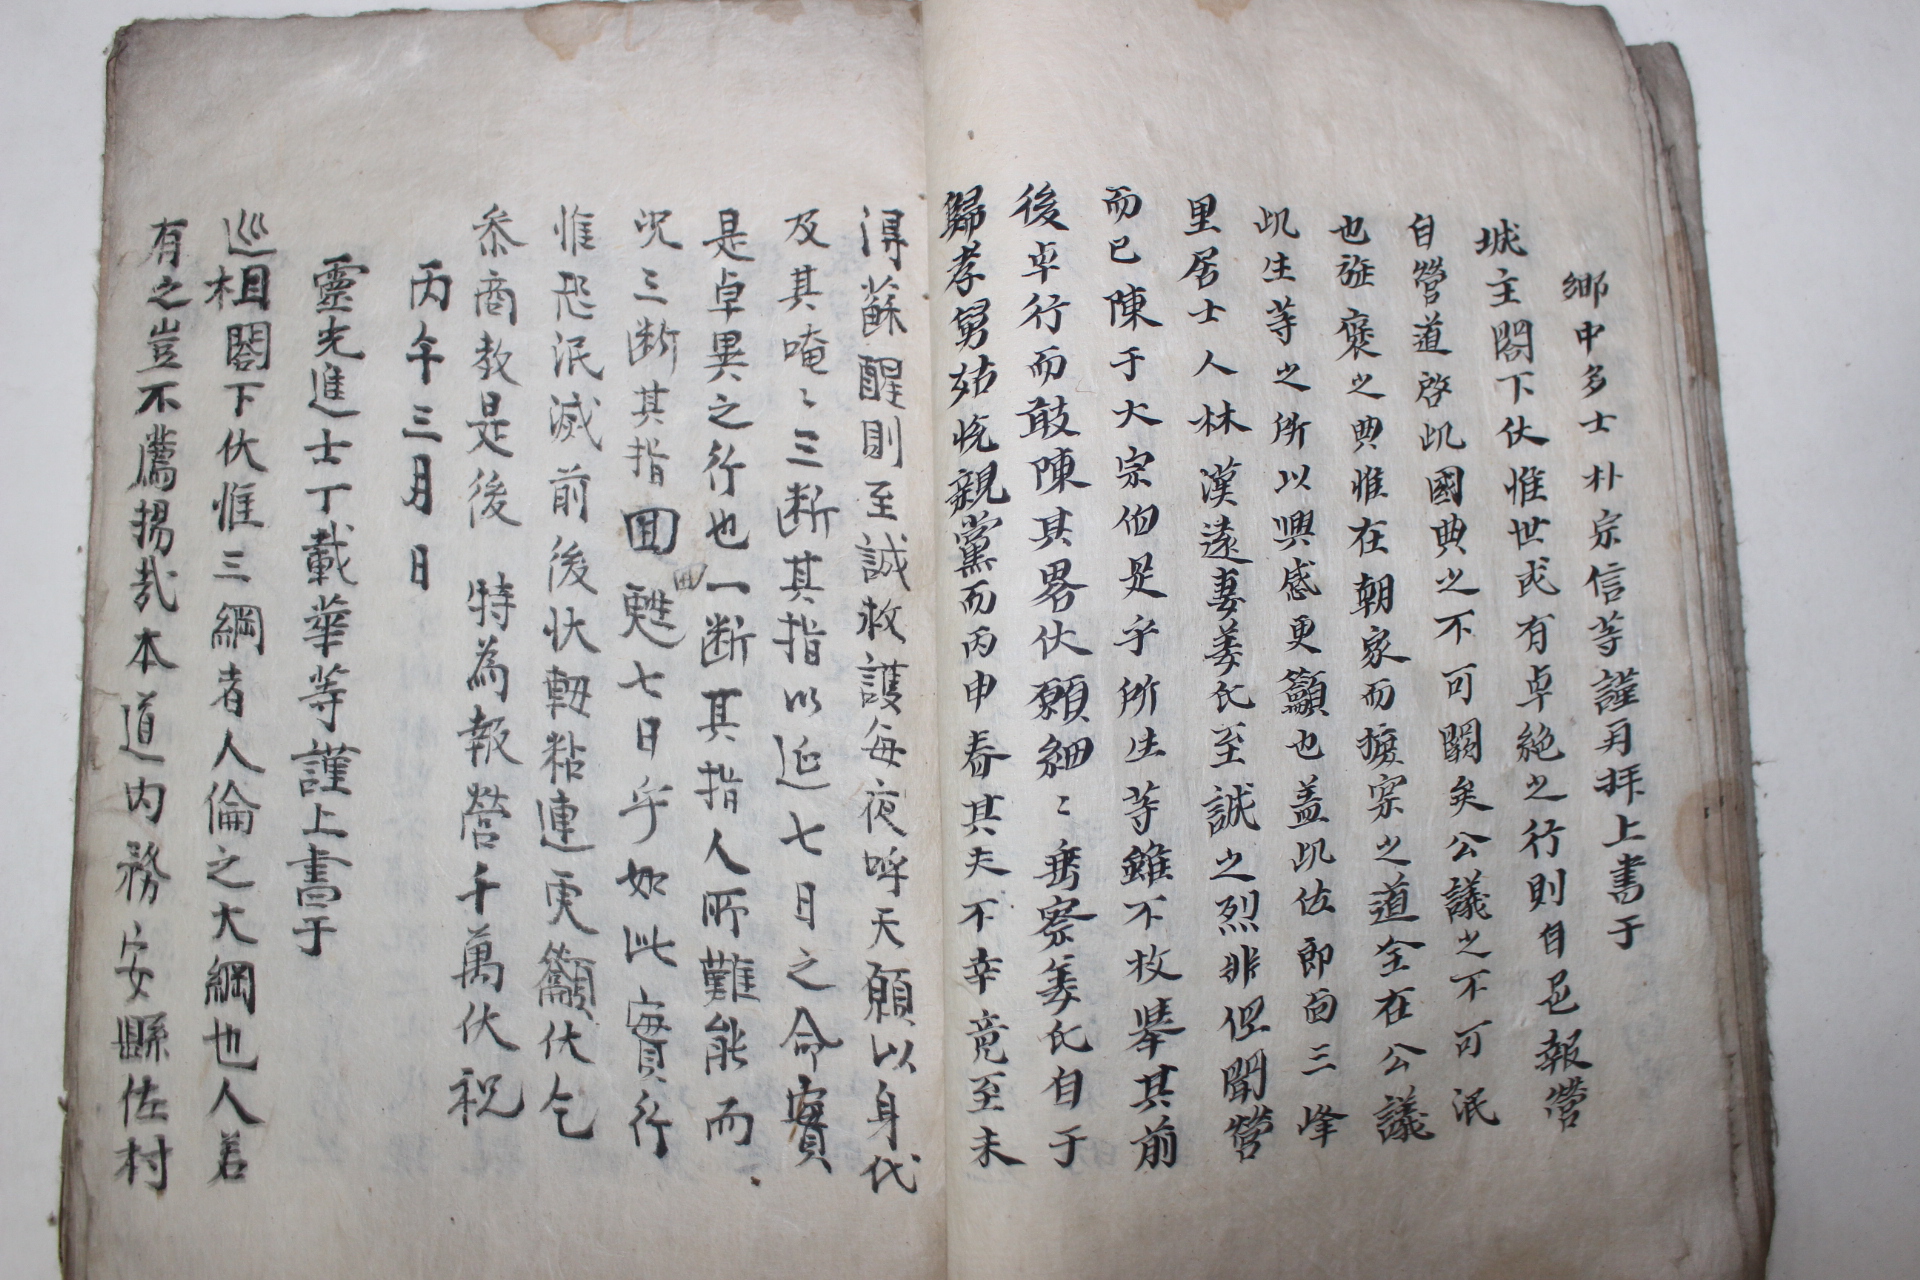 鄉中多士朴宗信等謹再拜上書于
城主閤下伏惟世或有卓絶之行則自邑報營
自營道啓此國典之不可闕矣公議之不可泯
也旌褒之典惟在朝家而擴崇之道全在公議
此生等之所以興感更籲也盖此佐即面三峰
里居士人林漢遠妻姜氏至誠之烈非但聞營
而已陳于大宗伯是乎所生等雖不枚擧其前
後卓行而敢陳其畧伏願細〻垂察姜氏自于
歸孝舅姑悅親黨而丙申春其夫不幸竟至未
得蘇醒則至誠救護每夜呼天願以身代
及其唵〻三断其指以延七日之命實
是卓異之行也一断其指人所難能而
况三断其指回甦七日乎如此實行
惟恐泯滅前後状軸粘連更籲伏乞
叅商敎是後 特為報營千萬伏祝
丙午三月 日
靈光進士丁載華等謹上書于
巡相閤下伏惟三綱者人倫之大綱也人若
有之豈不薦揚哉本道内務安縣佐村